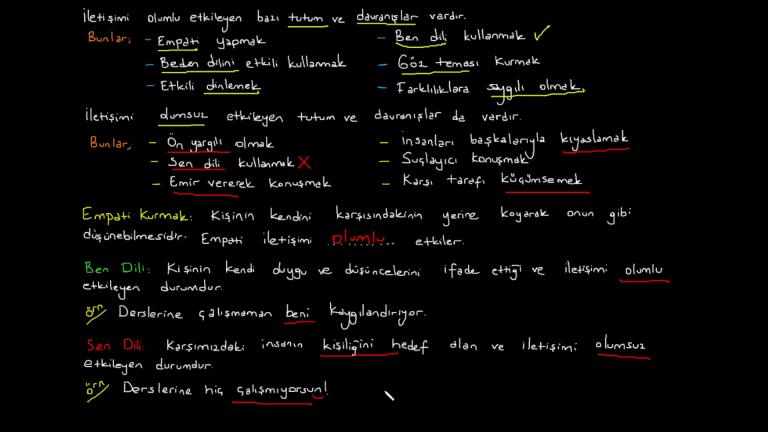 İletişimi olumlu etkileyen bazı tutum ve davranışlar vardır.
Bunlar; - Empati yapmak - Ben dili kullanmak ✓
- Beden dilini etkili kullanmak - Göz teması kurmak
- Etkili dinlemek - Farklılıklara saygılı olmak.
İletişimi olumsuz etkileyen tutum ve davranışlar da vardır.
Bunlar; - Ön yargılı olmak - İnsanları başkalarıyla kıyaslamak
- Sen dili kullanmak X - Suçlayıcı konuşmak
- Emir vererek konuşmak - Karşı tarafı küçümsemek
Empati Kurmak: Kişinin kendini karşısındakinin yerine koyarak onun gibi
düşünebilmesidir. Empati iletişimi olumlu etkiler.
Ben Dili: Kişinin kendi duygu ve düşüncelerini ifade ettiği ve iletişimi olumlu
etkileyen durumdur.
örn Derslerine çalışmaman beni kaygılandırıyor.
Sen Dili: Karşımızdaki insanın kişiliğini hedef alan ve iletişimi olumsuz
etkileyen durumdur.
örn Derslerine hiç çalışmıyorsun!